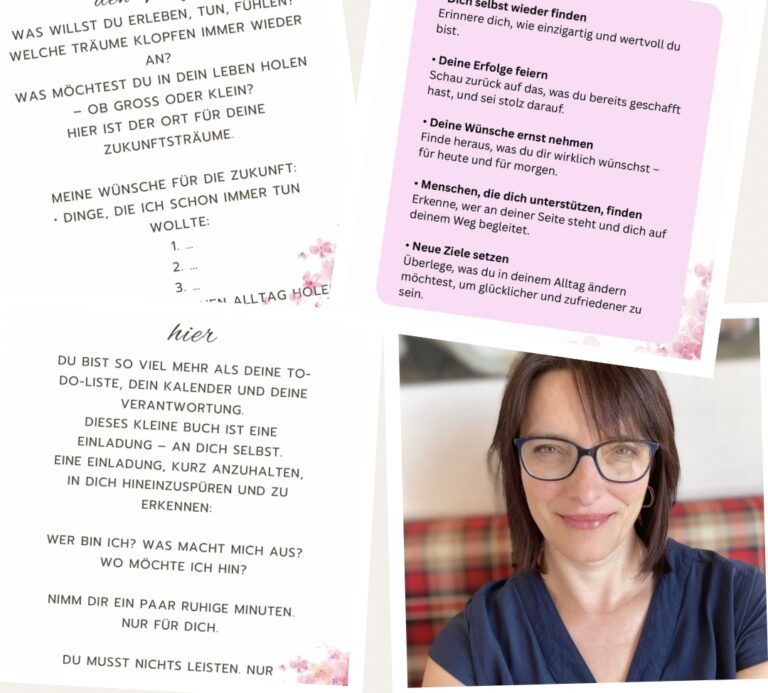 WAS WILLST DU ERLEBEN, TUN, FÜHLEN?
WELCHE TRÄUME KLOPFEN IMMER WIEDER
AN?
WAS MÖCHTEST DU IN DEIN LEBEN HOLEN
– OB GROSS ODER KLEIN?
HIER IST DER ORT FÜR DEINE
ZUKUNFTSTRÄUME.
MEINE WÜNSCHE FÜR DIE ZUKUNFT:
• DINGE, DIE ICH SCHON IMMER TUN
WOLLTE:
1. ...
2. ...
3. ...
ALLTAG HOLE
• Dich selbst wieder finden
Erinnere dich, wie einzigartig und wertvoll du
bist.
• Deine Erfolge feiern
Schau zurück auf das, was du bereits geschafft
hast, und sei stolz darauf.
• Deine Wünsche ernst nehmen
Finde heraus, was du dir wirklich wünschst –
für heute und für morgen.
• Menschen, die dich unterstützen, finden
Erkenne, wer an deiner Seite steht und dich auf
deinem Weg begleitet.
• Neue Ziele setzen
Überlege, was du in deinem Alltag ändern
möchtest, um glücklicher und zufriedener zu
sein.
hier
DU BIST SO VIEL MEHR ALS DEINE TO-
DO-LISTE, DEIN KALENDER UND DEINE
VERANTWORTUNG.
DIESES KLEINE BUCH IST EINE
EINLADUNG – AN DICH SELBST.
EINE EINLADUNG, KURZ ANZUHALTEN,
IN DICH HINEINZUSPÜREN UND ZU
ERKENNEN:
WER BIN ICH? WAS MACHT MICH AUS?
WO MÖCHTE ICH HIN?
NIMM DIR EIN PAAR RUHIGE MINUTEN.
NUR FÜR DICH.
DU MUSST NICHTS LEISTEN. NUR